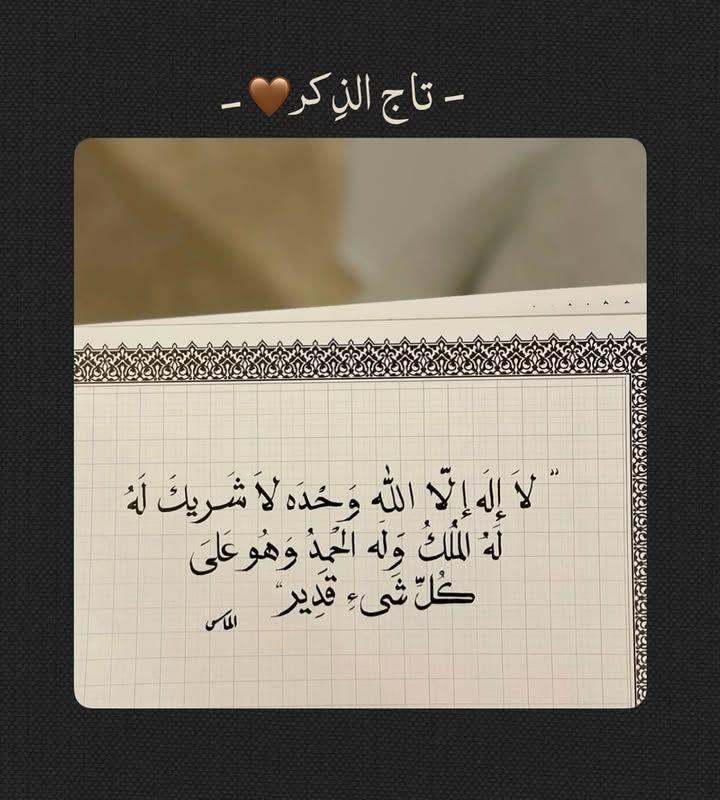 - تاج الذِكر🤎 -
" لاَ إِلَه إِلّا اللّه وَحْدَه لاَ شَريكَ لَهُ
لَهُ المُلكُ وَلَه الحَمدُ وَهُو عَلىَ
كُلِّ شَىءِ قَدِير "
الماسى